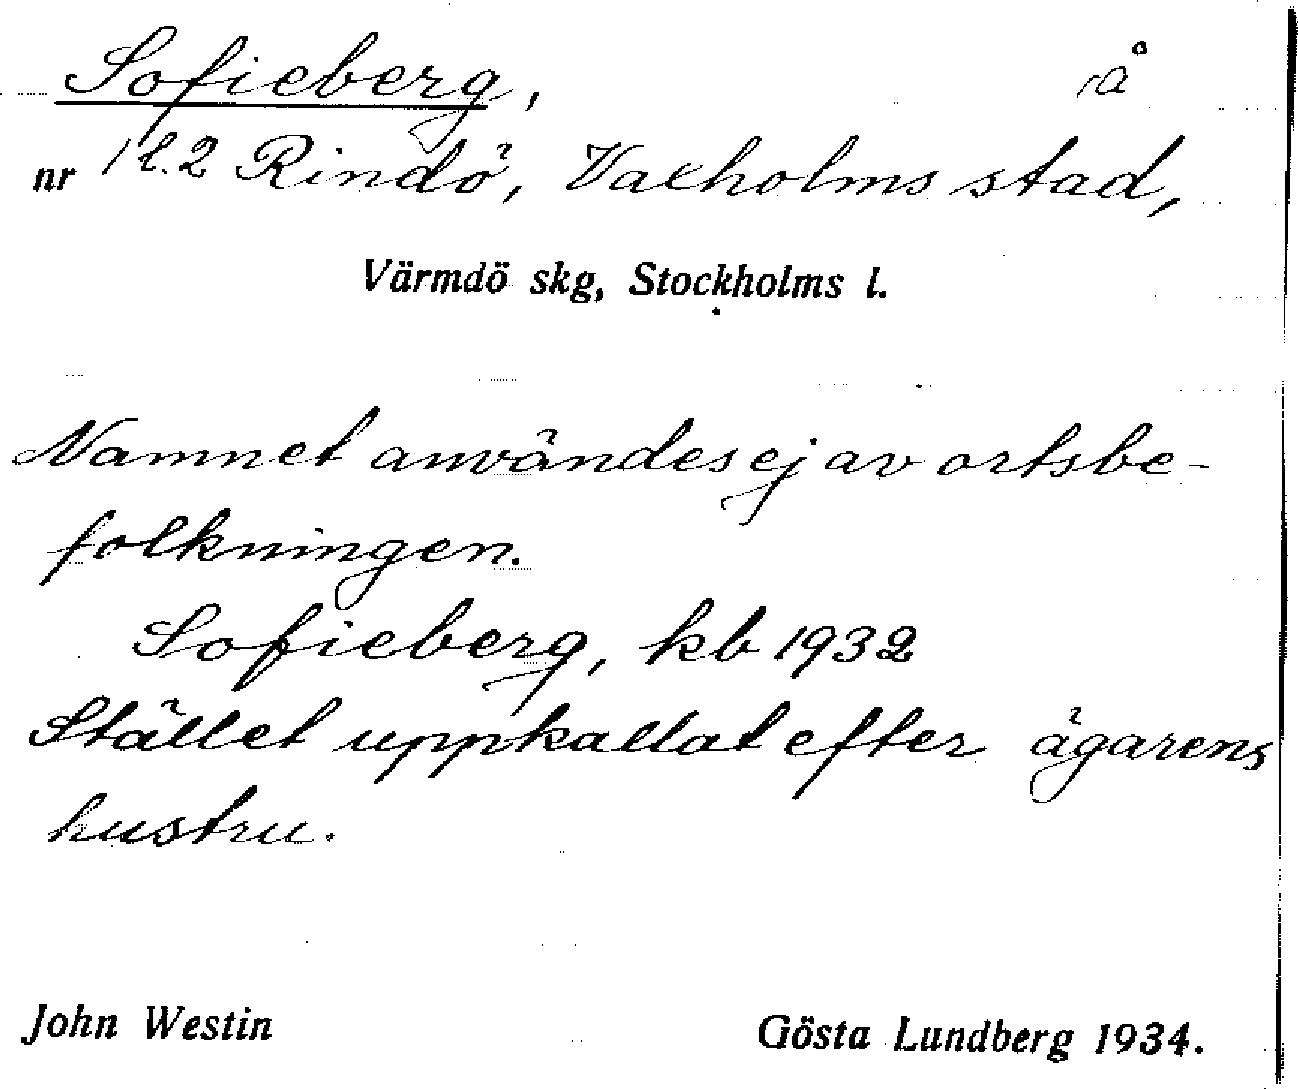 Sofieberg, å
nr 1 l. 2 Rindö, Vaxholms stad,
Värmdö skg, Stockholms l.
Namnet användes ej av ortsbe-
folkningen.
Sofieberg, kb 1932
Stället uppkallat efter ägarens
hustru.
John Westin Gösta Lundberg 1934.